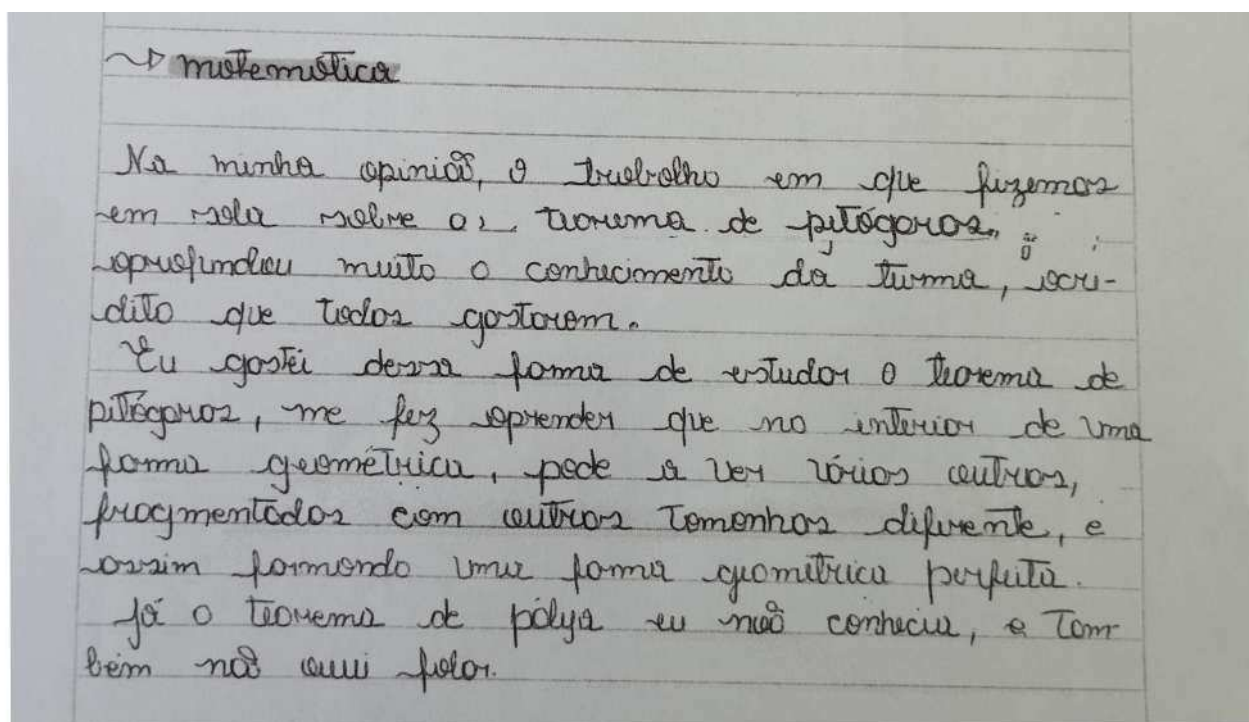 matemática
Na minha opinião, o trabalho em que fizemos
em sala sobre o, teorema de pitágoras,
aprofundou muito o conhecimento da turma, acre-
dito que todos gostaram.
Eu gostei dessa forma de estudar o teorema de
pitágoras, me fez aprender que no interior de uma
forma geométrica, pode a ver vários outros,
fragmentados com outros tamanhos diferente, e
assim formando uma forma geométrica perfeita.
Já o teorema de pólya eu não conhecia, e tam
bém não ouvi falar.